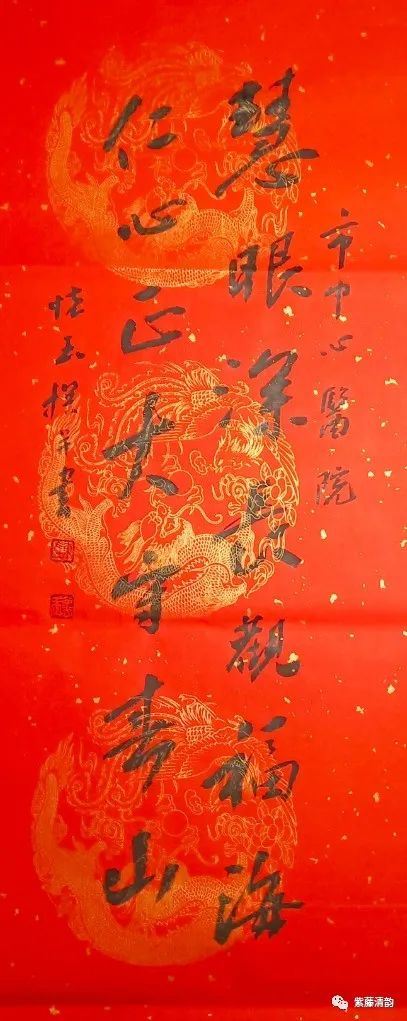 市中心醫院
慧眼深觀福海
仁心正大守寿山
玉撰并書
紫藤清韵